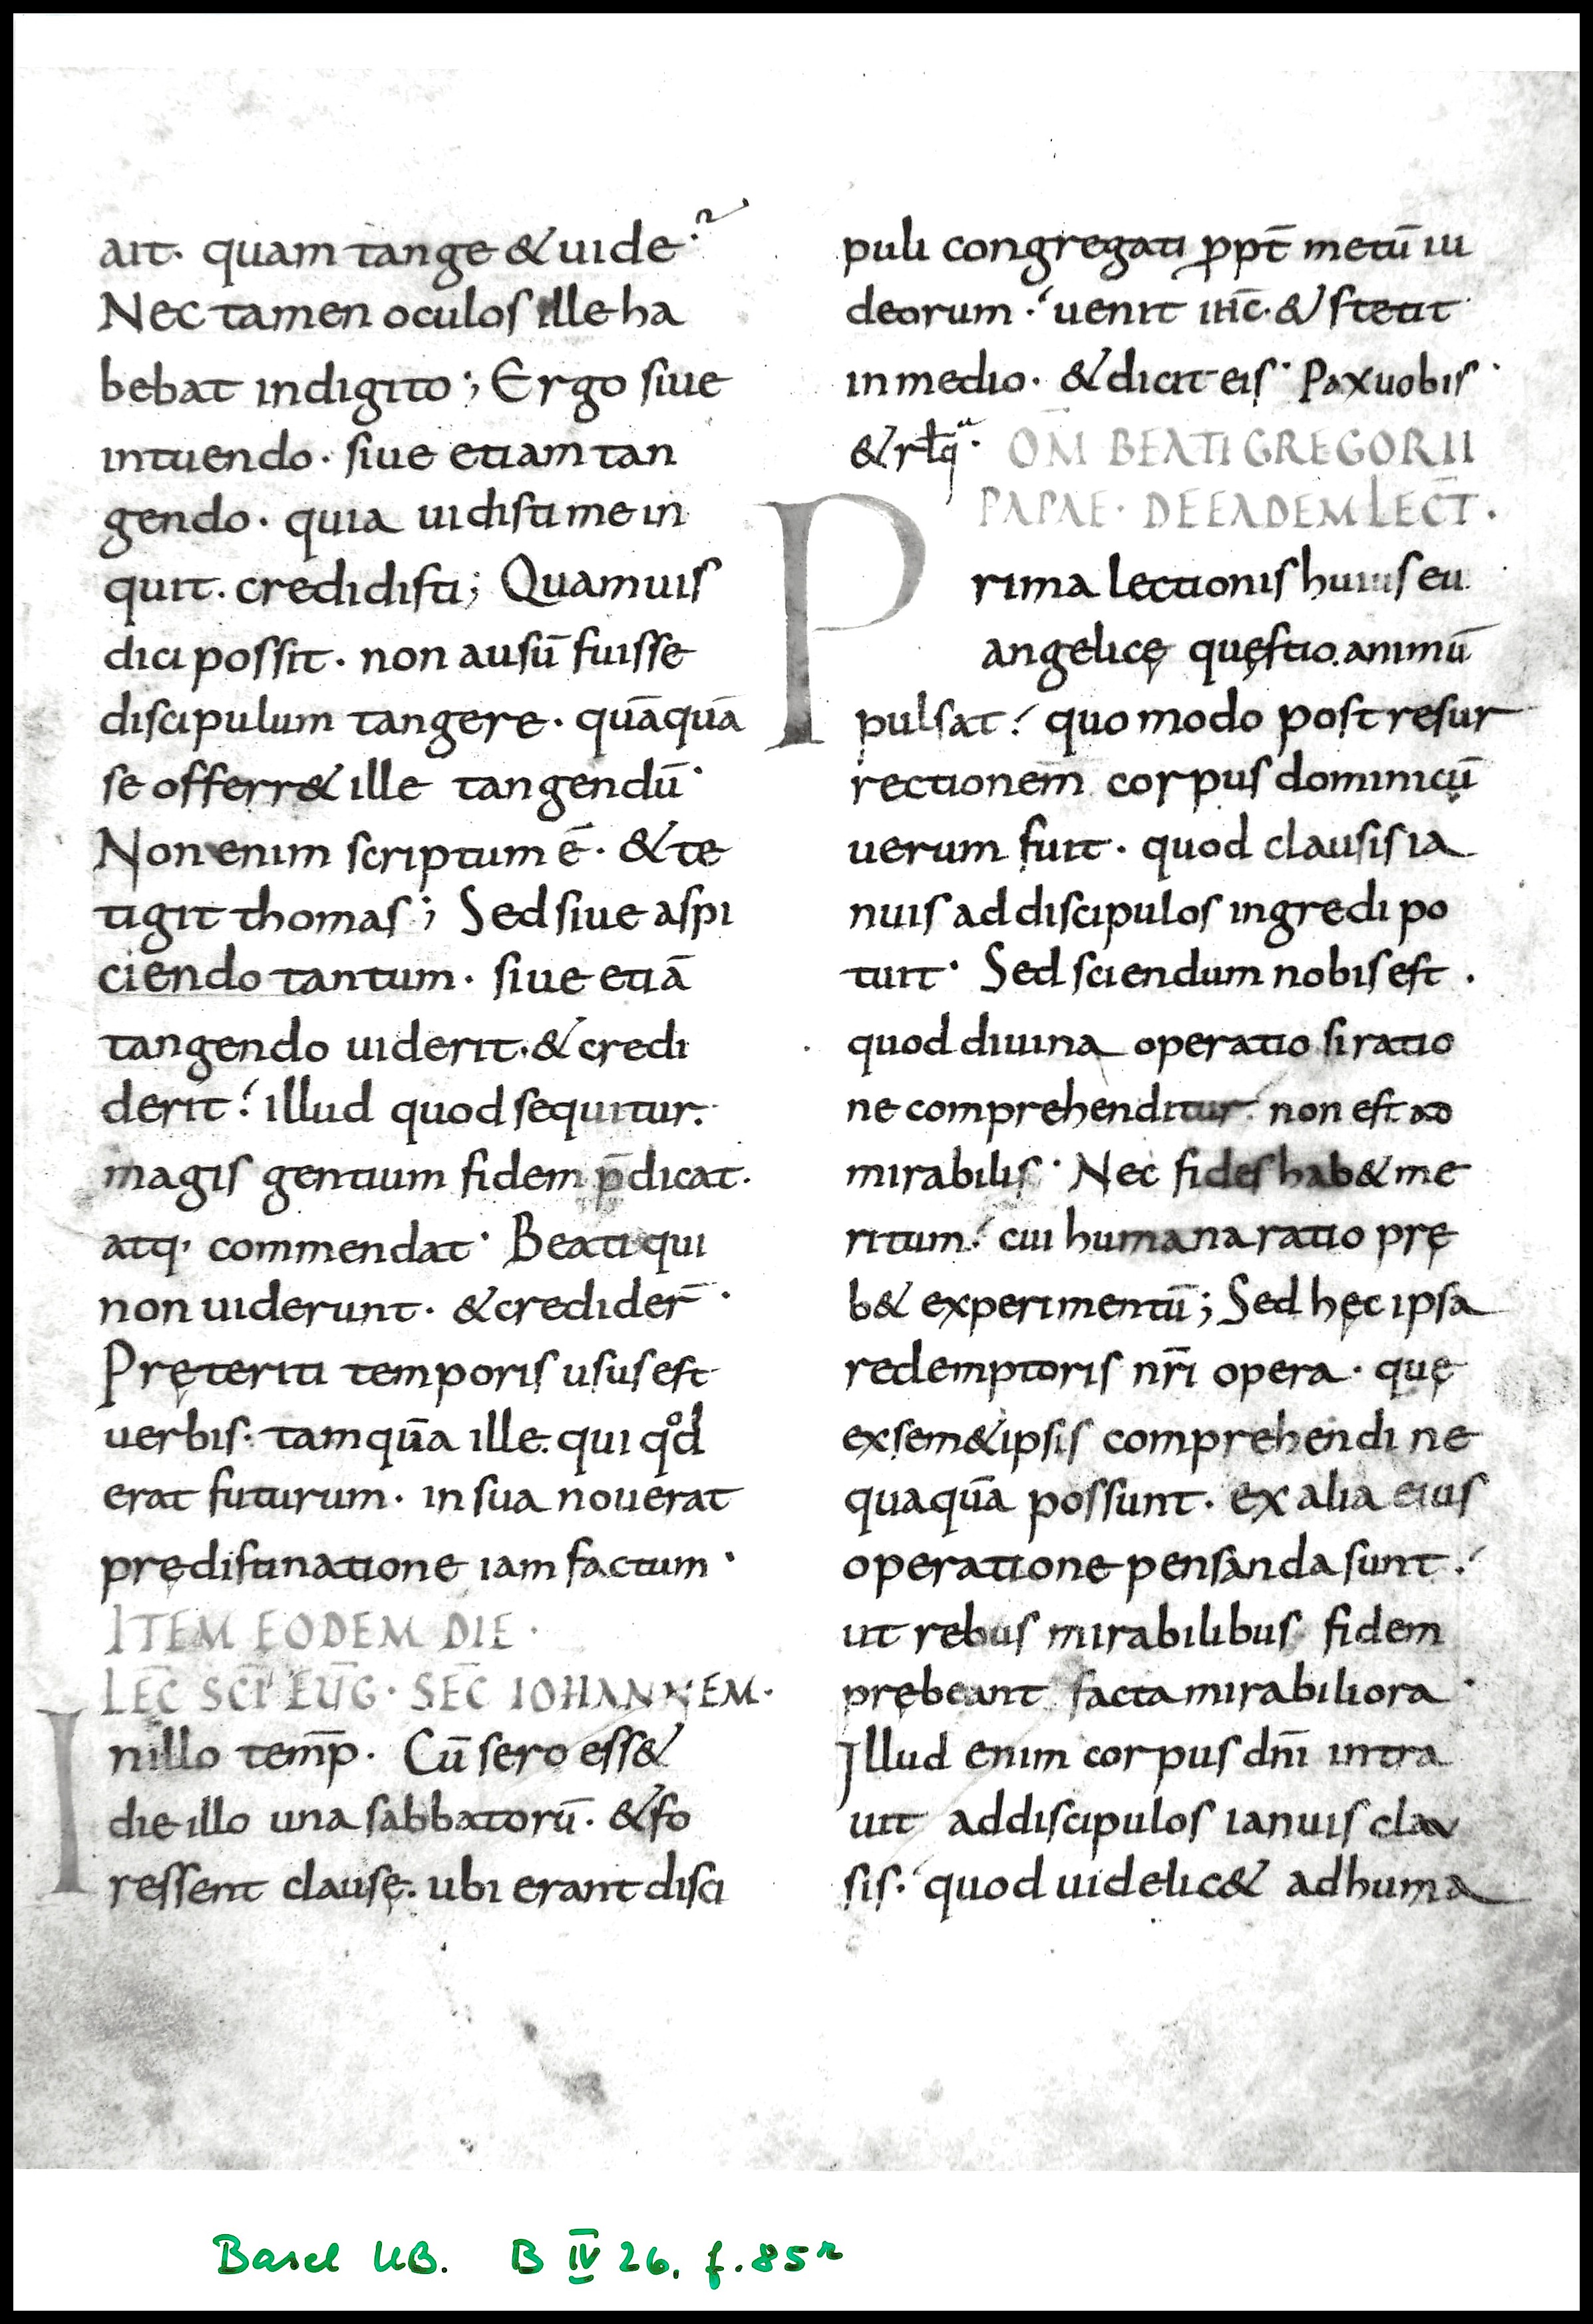 ait. quam tange & uide.
Nec tamen oculos ille ha
bebat indigito; Ergo siue
intuendo. siue etiam tan
gendo. quia uidisti me in
quit. credidisti; Quamuis
dici possit. non ausū fuisse
discipulum tangere. quāquā
se offerr& ille tangendū.
Non enim scriptum ē. & te
tigit thomas; Sed siue aspi
ciendo tantum. siue etiā
tangendo uiderit. & credi
derit. illud quod sequitur.
magis gentium fidem p̄dicat.
atq; commendat. Beati qui
non uiderunt. & credider̄.
Pręteriti temporis usus est
uerbis. tam quā ille. qui qd̊
erat futurum. in sua nouerat
prędistinatione iam factum.
ITEM EODEM DIE.
LEC̄ SCĪ EŪG. SEC̄ IOHANNEM.
Inillo tem̄p. Cū sero ess&
die illo una sabbatorū. & fo
ressent clausę. ubi erant disci
puli congregati ꝓpt̄ metū iu
deorum. uenit ihc̄. & stetit
in medio. & dicit eis. Pax uobis.
& rłq̄. OM̄ BEATI GREGORII
PAPAE. DE EADEM LECT̄.
Prima lectionis huius eu
angelicę quęstio. animū
pulsat. quo modo post resur
rectionem̄ corpus dominicū
uerum fuit. quod clausis ia
nuis ad discipulos ingredi po
tuit. Sed sciendum nobis est.
quod diuina operatio si ratio
ne comprehenditur. non est ad
mirabilis. Nec fides hab& me
ritum. cui humana ratio prę
b& experimentū; Sed hęc ipsa
redemptoris nr̄i opera. quę
ex sem& ipsis comprehendi ne
quaquā possunt. ex alia eius
operatione pensanda sunt.
ut rebus mirabilibus fidem
prębeant facta mirabiliora.
Illud enim corpus dn̄i intra
uit ad discipulos ianuis clau
sis. quod uidelic& ad huma
Basel UB. B IV 26, f. 85r